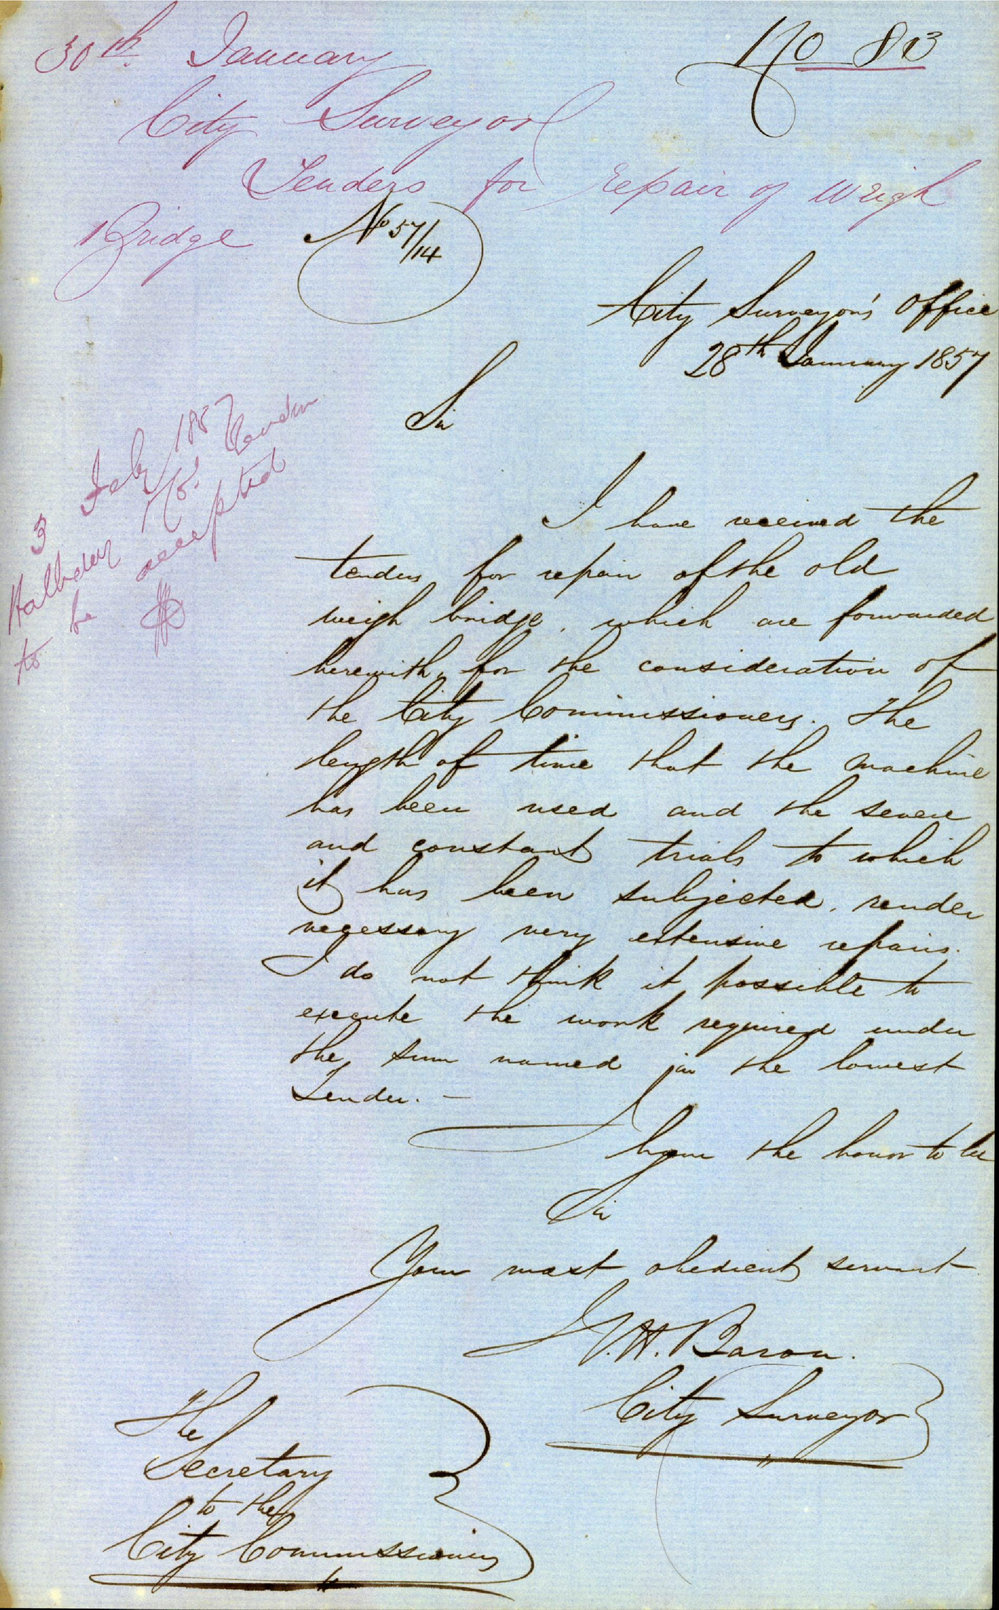 30th January
No 83
City Surveyor
Tenders for repair of Weigh
Bridge
No 57/14
City Surveyor's Office
28th January 1857
Sir
3 Feby 1857
Halliday tender
to be accepted
I have received the
tenders for repair of the old
weigh bridge, which are forwarded
herewith, for the consideration of
the City Commissioners. The
length of time that the machine
has been used and the severe
and constant trials to which
it has been subjected, render
necessary very extensive repairs.
I do not think it possible to
execute the work required under
the sum named in the lowest
Tender. –
I have the honor to be
Sir
Your most obedient servant
Baron.
City Surveyor
The
Secretary
to the
City Commissioners